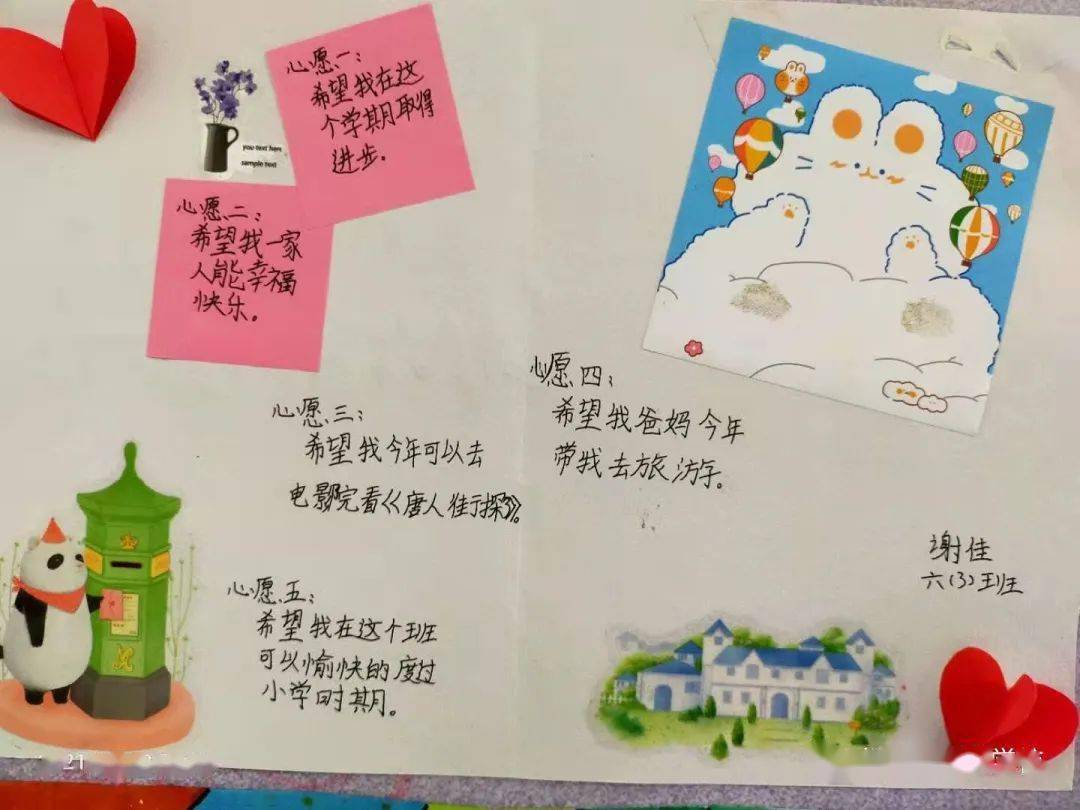 心愿一：
希望我在这
个学期取得
进步。
you text here
sample text
心愿二：
希望我一家
人能幸福
快乐。
心愿三：
希望我今年可以去
电影院看《唐人街探3》。
心愿四：
希望我爸妈今年
带我去旅游。
心愿五：
希望我在这个班
可以愉快的度过
小学时期。
谢佳
六（3）班
21